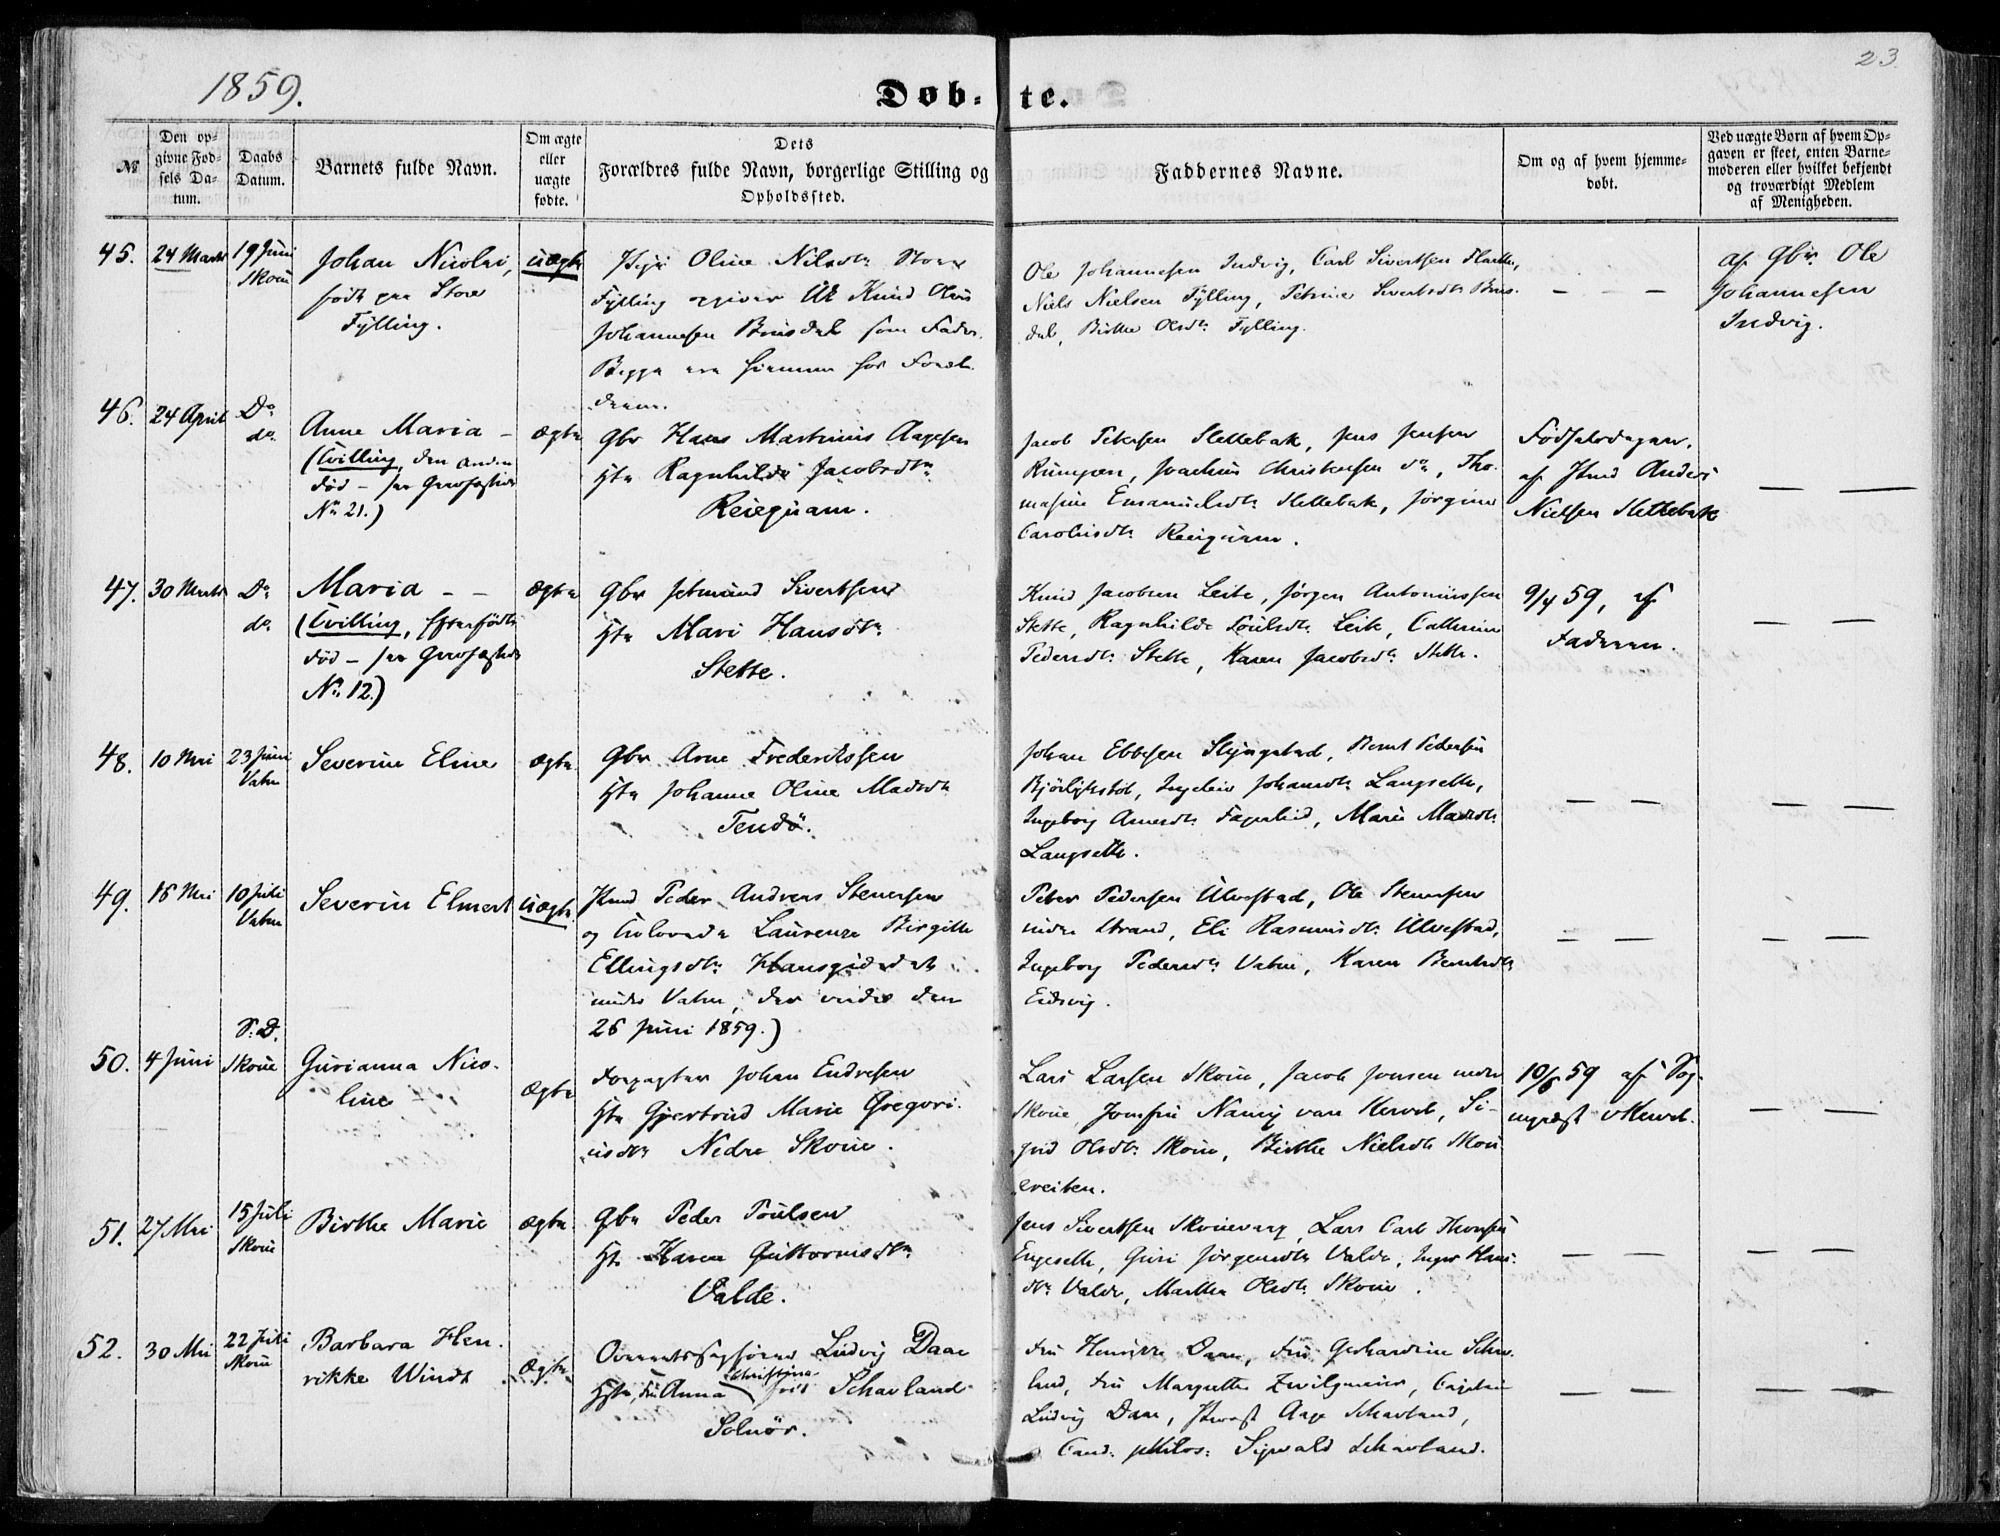 1859.
Døb-te.
23.
№
Den op-
givne Fød-
sels Da-
tum.
Daabs
Datum.
Barnets fulde Navn.
Om ægte
eller
uægte
fødte.
Dets
Forældres fulde Navn, borgerlige Stilling og
Opholdssted.
Faddernes Navne.
Om og af hvem hjemme-
døbt.
Ved uægte Børn af hvem Op-
gaven er skeet, enten Barne-
moderen eller hvilket bekjendt
og troværdigt Medlem
af Menigheden.
45.
24 Marts
19 Juni
Skoue
Johan Nicolai,
født paa Store
Fylling.
uægte
Pige Oline Nilsdtr Store
Fylling opgiver Knud Oluf
Johannesen Brusdal som Fader.
Begge ere hjemme hos Foræl-
drene.
Ole Johannesen Indvig, Carl Sivertsen
Niels Nielsen Fylling, Petrine Sivertsdtr Brus-
dal, Birthe Olsdtr Fylling.
— — —
af Gbr. Ole
Johannesen
Indvig.
46.
24 April
Do
do.
Anne Maria –
(Tvilling, den anden
død – see
No 21.)
ægte
Gbr Hans Martinus Aagesen
Hu Ragnhilde Jacobsdtr
Reiequam.
Jacob Petersen Slettebak, Jens Jensen
Joachim Christensen do, Tho-
masine Emanuelsdtr Slettebak, Jørgine
Carolusdtr Reiequam.
Fødselsdagen,
af Anders
Nielsen Slettebak
— —
47.
30 Marts
Do
do.
Maria – –
(Tvilling,
død – see
No 12.)
ægte
Gbr Jetmund Sivertsen
Hu Mari Hansdtr
Stette.
Knud Jacobsen Leite, Jørgen Antoniussen
Stette, Ragnhilde Poulsdtr Leite, Cathrine
Pedersdtr Stette, Karen Jacobsdtr Stette.
9/4 59, af
Faderen.
— —
48.
10 Mai
23 Juni
Vatne
Severine Eline
ægte
Gbr Arne Frederikssen
Hu Johanne Oline Madsdtr
Tendø.
Johan Ebbesen Slyngstad, Bernt Pedersen
Johansdtr Langsette,
Ingeborg Arnesdtr Fagerlied, Marie Madsdtr
Langsette.
— —
— —
49.
15 Mai
10 Juli
Vatne
Severin Elmert
uægte
Knud Peder Andreas Stenersen
og Laurenze Birgitte
Ellingsdtr
under Vatne,
26 Juni 1859.)
Peter Pedersen Ulvestad, Ole Stenersen
under Strand, Eli Rasmusdtr Ulvestad,
Ingeborg Pedersdtr Vatne, Karen Berntsdtr
Eidsvig.
— —
— —
50.
4 Juni
S. D.
Skoue
Gurianna Nico-
line
ægte
Forpagter Johan Endresen
Hu Gjertrud Marie Gregori-
usdtr Nedre Skoue.
Lars Larsen Skoue, Jacob Jonsen nedre
Skoue, Jomfru Nanny van Kervel, Si-
grid Olsdtr Skoue, Birthe Nielsdtr Skou-
ereiten.
10/6 59 af Sog-
nepræst vKervel.
— —
51.
27 Mai
15 Juli
Skoue
Birthe Marie
ægte
Gbr Peder Poulsen
Hu Karen Guttormsdtr
Valde.
Jens Sivertsen Skouevaag, Lars Carl Thomsen
Engesette, Guri Jørgensdtr Valde, Inger Hans-
dtr Valde, Marthe Olsdtr Skoue.
— —
— —
52.
30 Mai
22 Juli
Skoue
Barbara Hen-
rikke Windt
ægte
Overretssagfører Ludvig Daae
Hu, Fru Anna Christina
Schavland
Solnør.
Fru Henrikke Daae, Fru Gerhardine Schav-
land, Fru Margrethe Zwilgmeier, Capitain
Ludvig Daae, Aage Schavland,
Cand: philos: Sigwald Schavland.
— —
— —